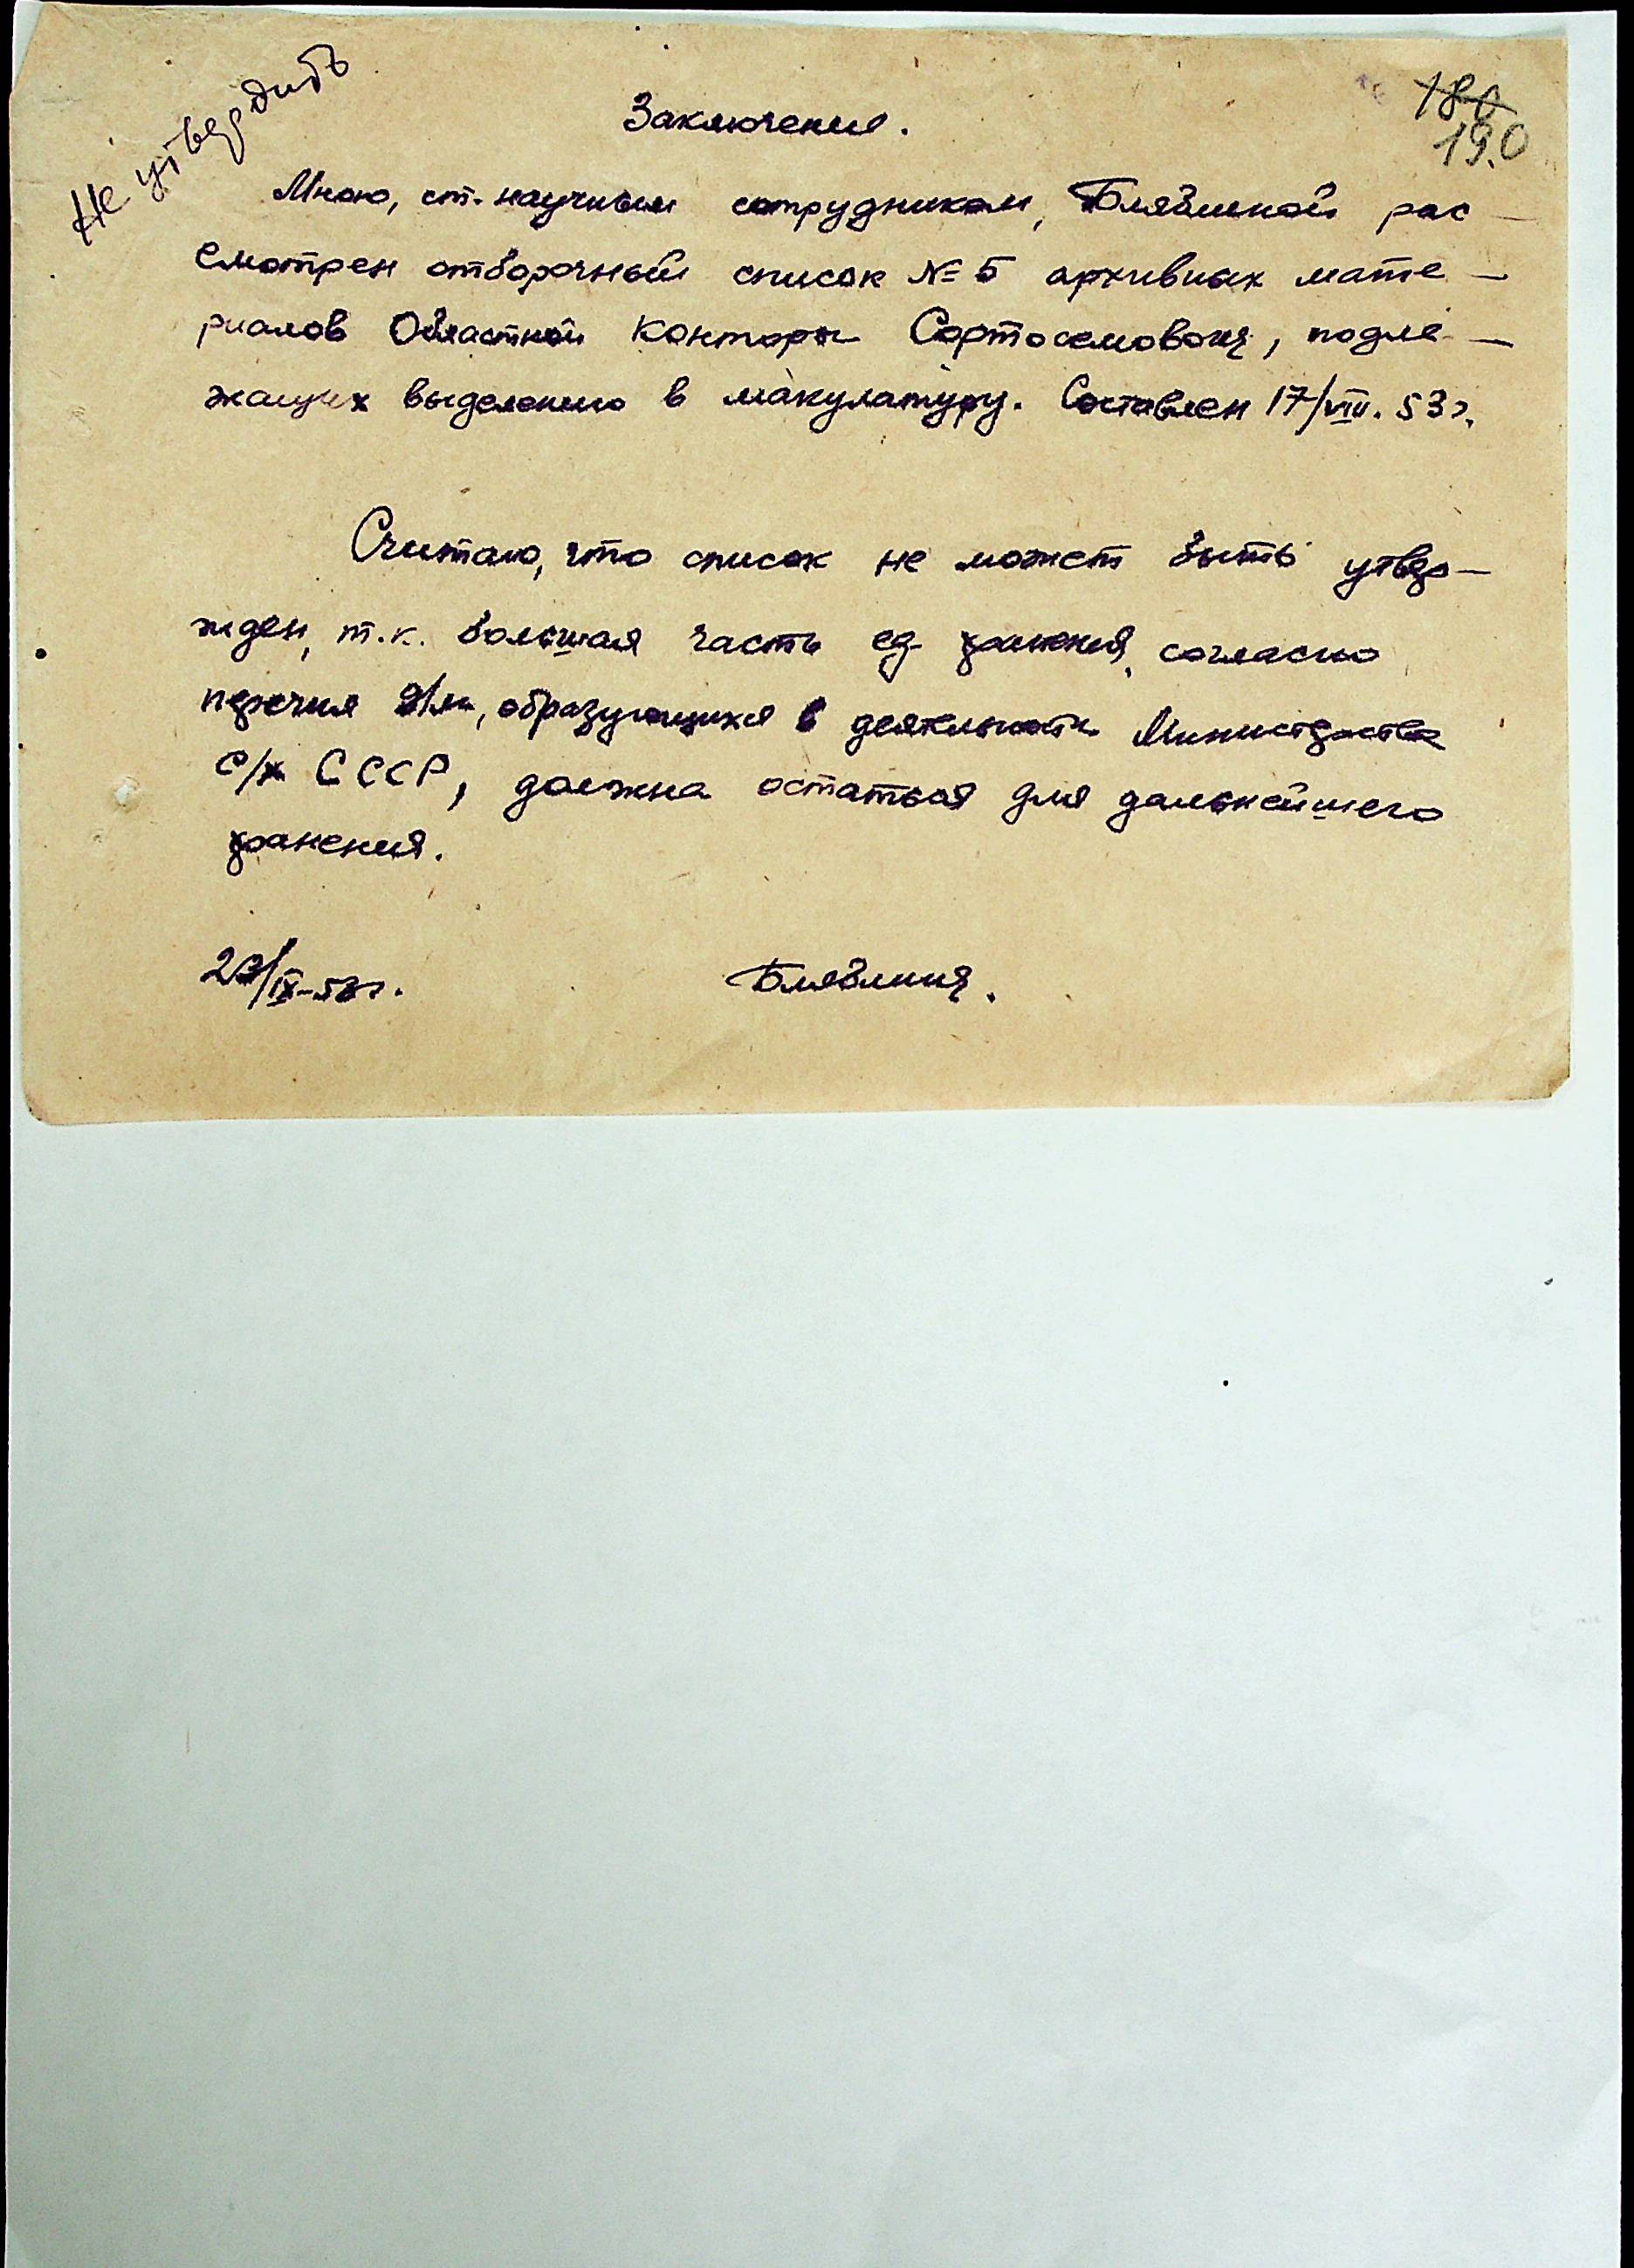 Не утвердить
180
190
Заключение.
Мною, ст. научным сотрудником, Бляблиной рас-
смотрен отборочный список № 5 архивных мате-
риалов Областной Конторы Сортосемовощ, подле-
жащих выделению в макулатуру. Составлен 17/VIII. 53 г.
Считаю, что список не может быть утвер-
жден, т.к. большая часть ед. хранения, согласно
перечня д/м, образующихся в деятельности Министерства
С/х СССР, должна остаться для дальнейшего
хранения.
/IX-53 г.